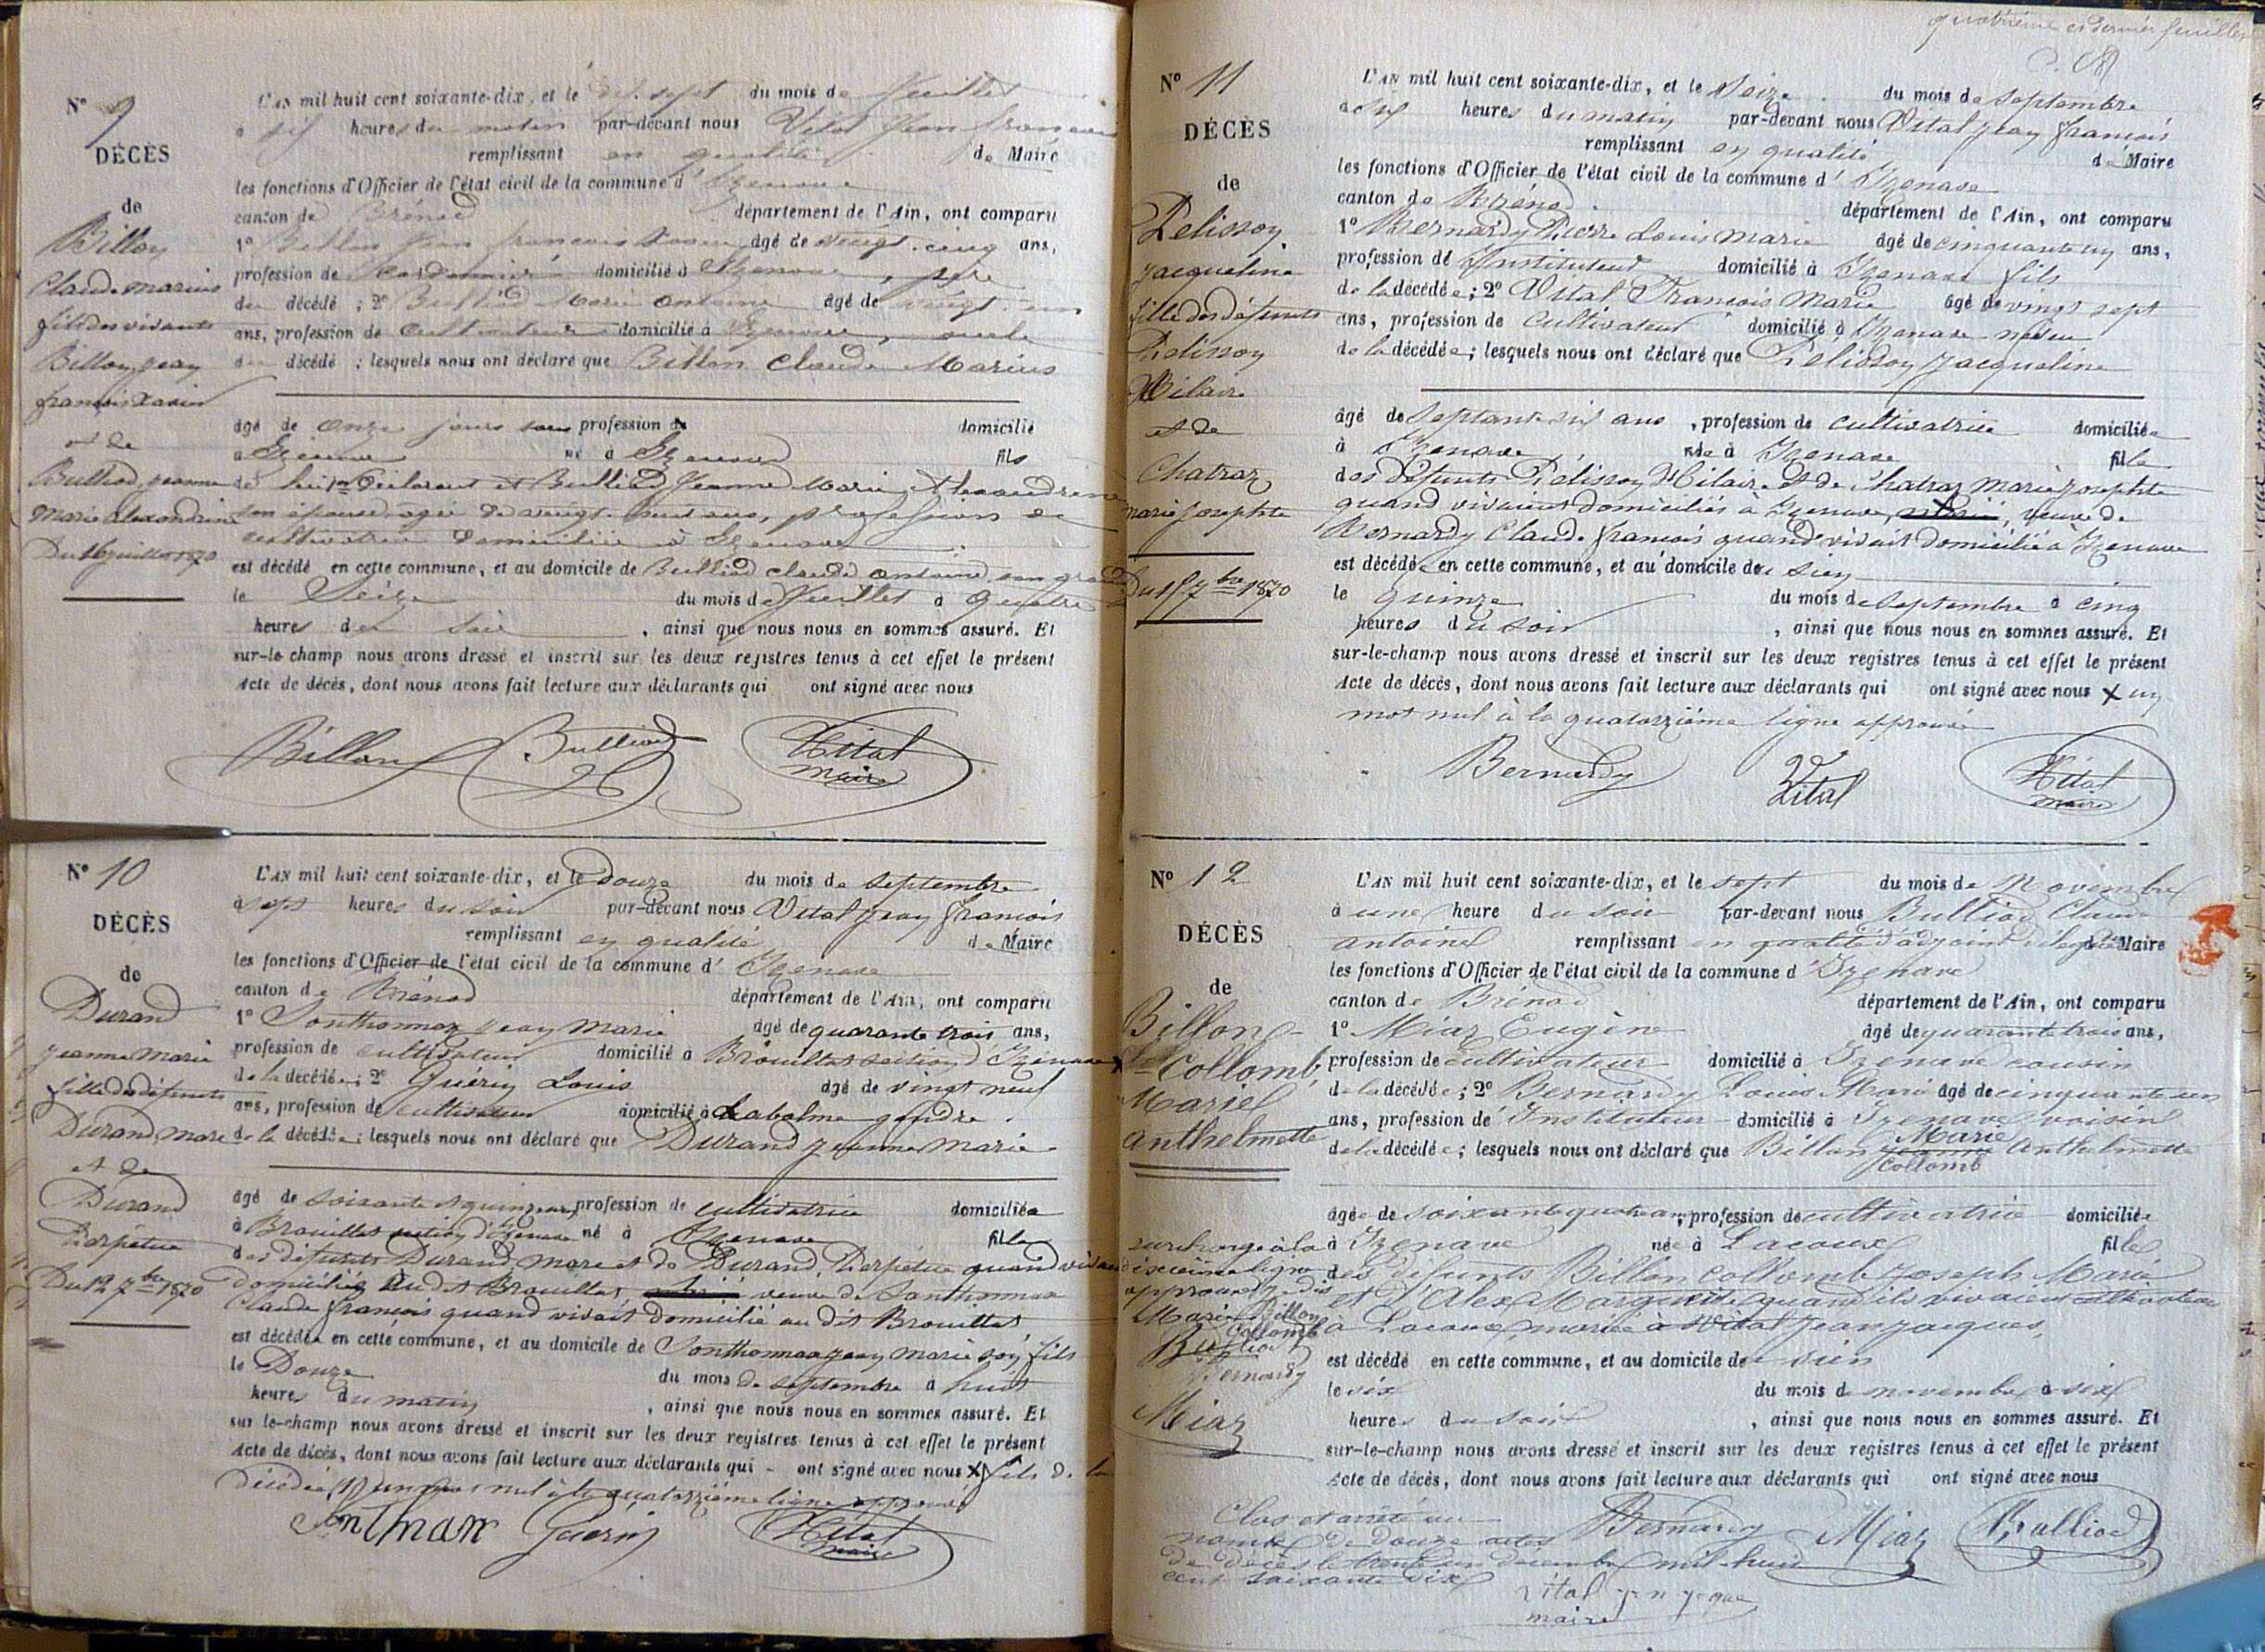 N° 9
DÉCÈS
de
Billon
Claude Marius
fils des vivants
Billon Jean
françois Xavier
et de
Bulliod Jeanne
Marie Alexandrine
Du 16 juillet 1870
L'AN mil huit cent soixante-dix, et le dix sept du mois de Juillet
à six heures du matin par-devant nous Vital Jean françois
remplissant en qualité de Maire
les fonctions d'Officier de l'état civil de la commune d'Izenave
canton de Brénod département de l'Ain, ont comparu
1° Billon Jean françois Xavier âgé de vingt-cinq ans,
profession de domicilié à Izenave, père
du décédé ; 2° Bulliod Marie Antoine âgé de vingt-un
ans, profession de cultivateur domicilié à Izenave, oncle
du décédé ; lesquels nous ont déclaré que Billon Claude Marius
âgé de onze jours sans profession de domicilié
à Izenave né à Izenave fils
de lui 1er Déclarant et Bulliod Jeanne Marie Alexandrine
son épouse âgée de vingt-huit ans, profession de
cultivatrice domiciliée à Izenave
est décédé en cette commune, et au domicile de Bulliod claude antoine son grand
le Seize du mois de Juillet à quatre
heures du soir , ainsi que nous nous en sommes assuré. Et
sur-le-champ nous avons dressé et inscrit sur les deux registres tenus à cet effet le présent
Acte de décès, dont nous avons fait lecture aux déclarants qui ont signé avec nous
Billon Bulliod Vital
maire
N° 10
DÉCÈS
de
Durand
jeanne Marie
fille des défunts
Durand Marc
et de
Durand
Perpétue
Du 12 7bre 1870
L'AN mil huit cent soixante-dix, et le douze du mois de septembre
à sept heures du soir par-devant nous Vital jean françois
remplissant en qualité de Maire
les fonctions d'Officier de l'état civil de la commune d'Izenave
canton de Brénod département de l'Ain, ont comparu
1° Sonthonnax jean Marie âgé de quarante trois ans,
profession de cultivateur domicilié à Brouillat section d'Izenave X
de la décédée ; 2° Guérin Louis âgé de vingt neuf
ans, profession de cultivateur domicilié à Labalme gendre
de la décédée ; lesquels nous ont déclaré que Durand jeanne Marie
âgé de soixante et quinze ans, profession de cultivatrice domiciliée
à Brouillat section d'Izenave né à Izenave fille
des défunts Durand marc et de Durand Perpétue quand vivaient
domiciliés audit Brouillat, veuve de Sonthonnax
Claude françois quand vivait domicilié au dit Brouillat
est décédée en cette commune, et au domicile de Sonthonnax jean Marie son fils
le Douze du mois de septembre à huit
heures du matin , ainsi que nous nous en sommes assuré. Et
sur-le-champ nous avons dressé et inscrit sur les deux registres tenus à cet effet le présent
Acte de décès, dont nous avons fait lecture aux déclarants qui ont signé avec nous X fils de la
décédée, un mot nul à la quatorzième ligne approuvé
Guérin Vital
maire
quatrième et dernier feuillet
N° 11
DÉCÈS
de
Pelisson
jacqueline
fille des défunts
Pelisson
Hilaire
et de
Chatraz
marie josephte
Du 15 7bre 1870
L'AN mil huit cent soixante-dix, et le Seize du mois de septembre
à six heures du matin par-devant nous Vital jean françois
remplissant en qualité de Maire
les fonctions d'Officier de l'état civil de la commune d'Izenave
canton de Brénod département de l'Ain, ont comparu
1° Bernardy Pierre Louis Marie âgé de cinquante un ans,
profession de Instituteur domicilié à Izenave fils
de la décédée ; 2° Vital François Marie âgé de vingt sept
ans, profession de cultivateur domicilié à Izenave neveu
de la décédée ; lesquels nous ont déclaré que Pelisson Jacqueline
âgé de septante six ans , profession de cultivatrice domiciliée
à Izenave née à Izenave fille
des défunts Pelisson Hilaire et de Chatraz Marie josephte
quand vivaient domiciliés à Izenave, veuve de
Bernardy Claude françois quand vivait domicilié à Izenave
est décédée en cette commune, et au domicile de sien
le quinze du mois de septembre à cinq
heures du soir , ainsi que nous nous en sommes assuré. Et
sur-le-champ nous avons dressé et inscrit sur les deux registres tenus à cet effet le présent
Acte de décès, dont nous avons fait lecture aux déclarants qui ont signé avec nous X un
mot nul à la quatorzième ligne approuvé
Bernardy Vital Vital
maire
N° 12
DÉCÈS
de
Billon
Collomb
Marie
Anthelmette
L'AN mil huit cent soixante-dix, et le sept du mois de Novembre
à une heure du soir par-devant nous Bulliod Claude
antoine remplissant en qualité d'adjoint délégué de Maire
les fonctions d'Officier de l'état civil de la commune d'Izenave
canton de Brénod département de l'Ain, ont comparu
1° Miaz Eugène âgé de quarante trois ans,
profession de cultivateur domicilié à Izenave cousin
de la décédée ; 2° Bernardy Louis Marie âgé de cinquante un
ans, profession de Instituteur domicilié à Izenave voisin
de la décédée ; lesquels nous ont déclaré que Billon Marie Anthelmette
Collomb
âgée de soixante quatre ans, profession de cultivatrice domiciliée
à Izenave née à Lacoux fille
des défunts Billon Collomb Joseph Marie
et d'Alex Marguerite quand ils vivaient cultivateurs
à Lacoux, mariée à Vital Jean Jacques,
est décédé en cette commune, et au domicile de sien
le six du mois de novembre à six
heures du soir , ainsi que nous nous en sommes assuré. Et
sur-le-champ nous avons dressé et inscrit sur les deux registres tenus à cet effet le présent
Acte de décès, dont nous avons fait lecture aux déclarants qui ont signé avec nous
surcharge à la
dixième ligne
approuvée dis
Marie Billon
Collomb
Bulliod
Bernardy
Miaz
Bernardy Miaz Bulliod
Clos et arrêté au
nombre de douze actes
de décès le trente un décembre mil huit
cent soixante dix
Vital
maire